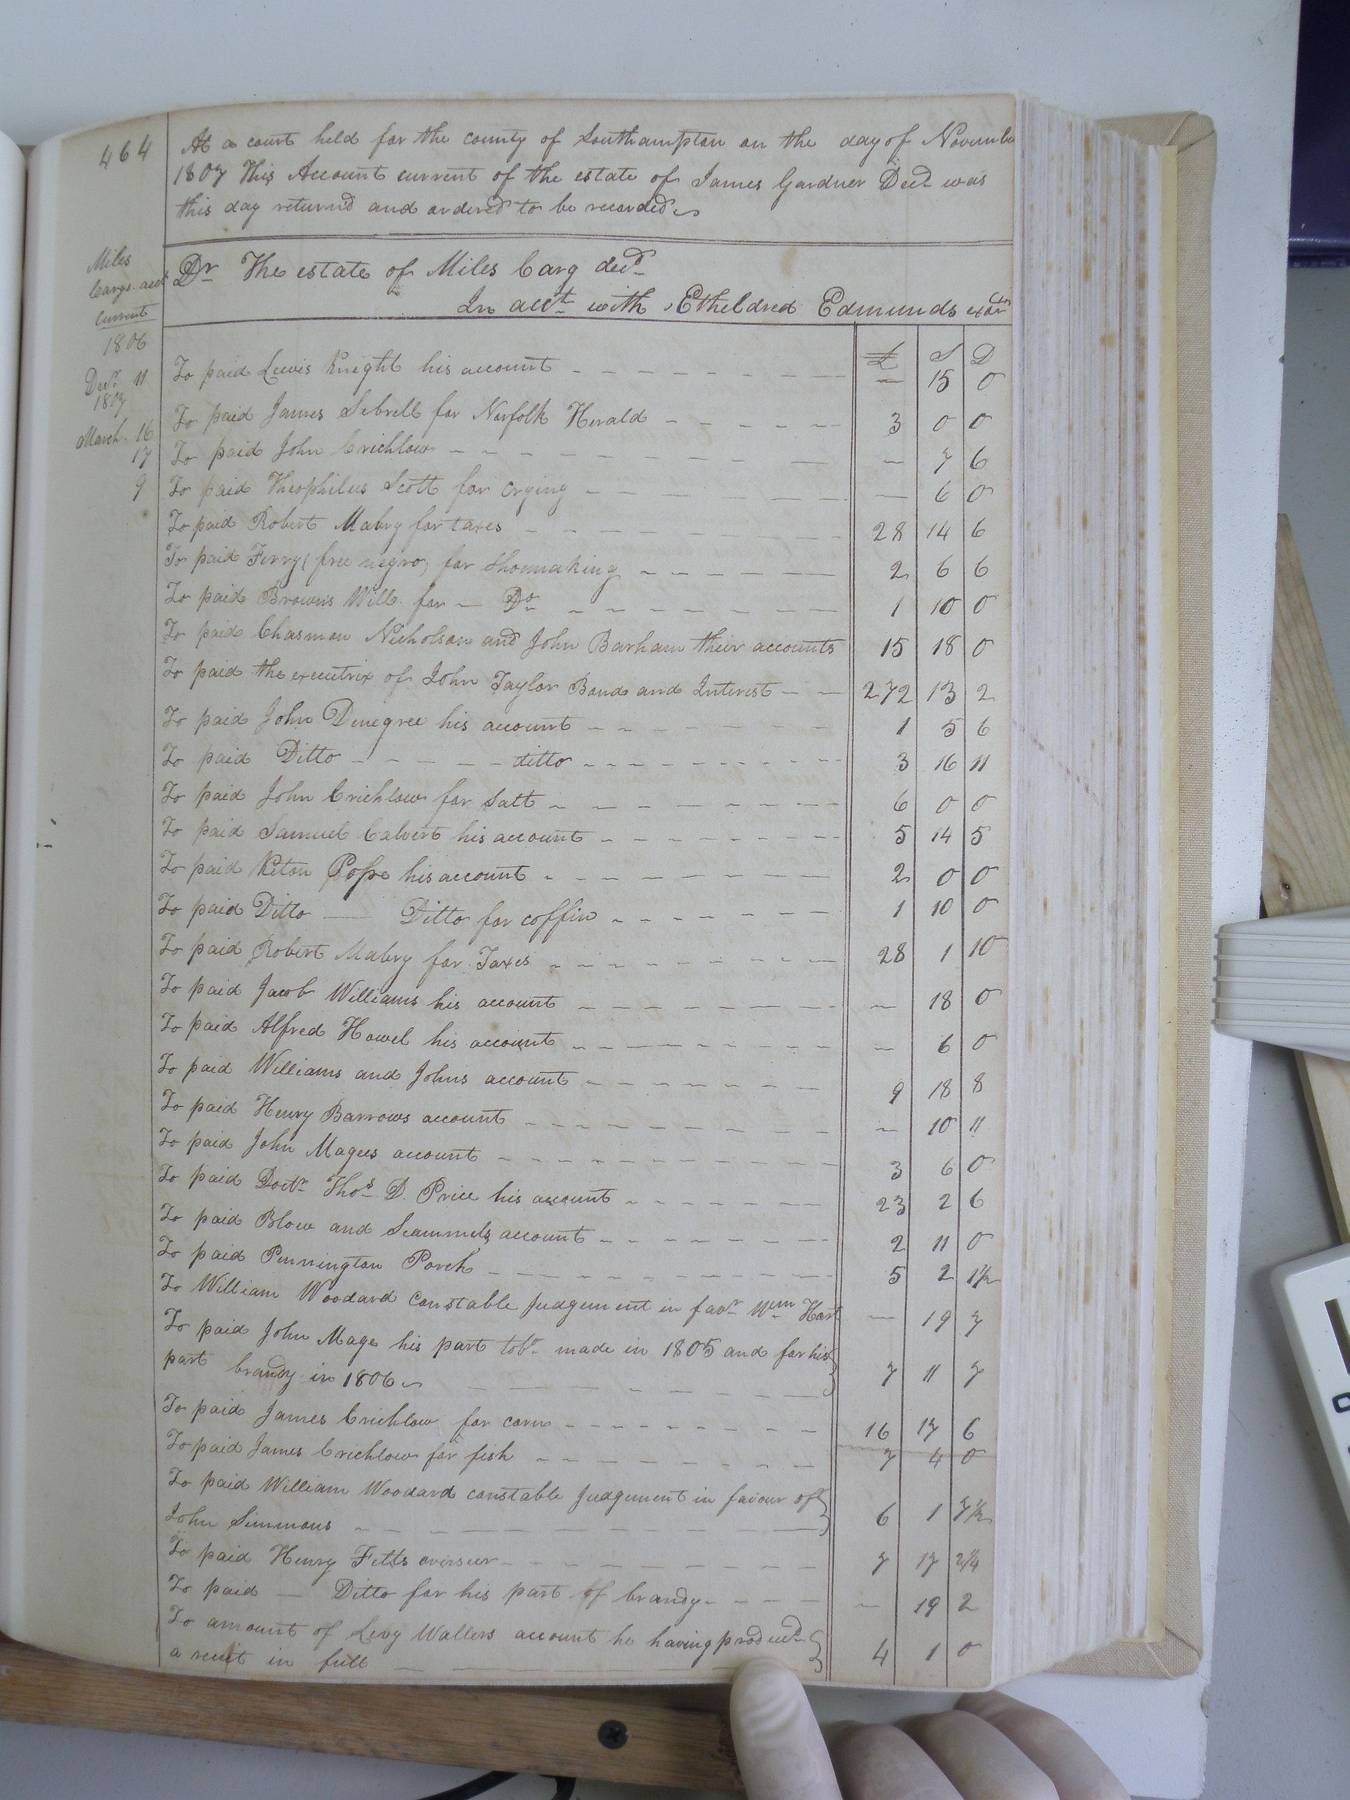 464
At a court held for the county of Southampton on the day of Novembe
1807 This Account current of the estate of James Gardner Decd was
this day returnd and orderd to be recorded
Miles
Carys acct
Current
1806
Dr The estate of Miles Cary decd
In acct with Etheldred Edmunds exetr
£ S D
Decr 11 To paid Lewis Knight his account — 15 0
1807
March 16 To paid James Sebrell for Norfolk Herald 3 0 0
17 To paid John Crichlow — 7 6
9 To paid Theophilus Scott for crying — 6 0
To paid Robert Mabry for taxes 28 14 6
To paid (free negro) for shoemaking 2 6 6
To paid Browns Will for — Do 1 10 0
To paid Chasman Nicholson and John Barham their accounts 15 18 0
To paid the executrix of John Taylor Bonds and Interest 272 13 2
To paid John Denegree his account 1 5 6
To paid Ditto ditto 3 16 11
To paid John Crichlow for Salt 6 0 0
To paid Samuel Calvert his account 5 14 5
To paid Pope his account 2 0 0
To paid Ditto — Ditto for coffin 1 10 0
To paid Robert Mabry for Taxes 28 1 10
To paid Jacob Williams his account — 18 0
To paid Alfred Howel his account — 6 0
To paid Williams and Johns account 9 18 8
To paid Henry Barrows account — 10 11
To paid John Magees account 3 6 0
To paid Doctr Thos D. Price his account 23 2 6
To paid Blow and Scammels account 2 11 0
To paid Pennington Porch 5 2 1½
To William Woodard constable Judgement in favr Wm Hart — 19 7
To paid John Mage his part tobo made in 1805 and for his
part brandy in 1806 7 11 7
To paid James Crichlow for corn 16 17 6
To paid James Crichlow for fish 7 4 0
To paid William Woodard constable Judgement in favour of
John Simmons 6 1 7½
To paid Henry Fitts overseer 7 17 2¼
To paid — Ditto for his part of brandy — 19 2
To amount of Levy Wallers account he having producd
a recit in full 4 1 0